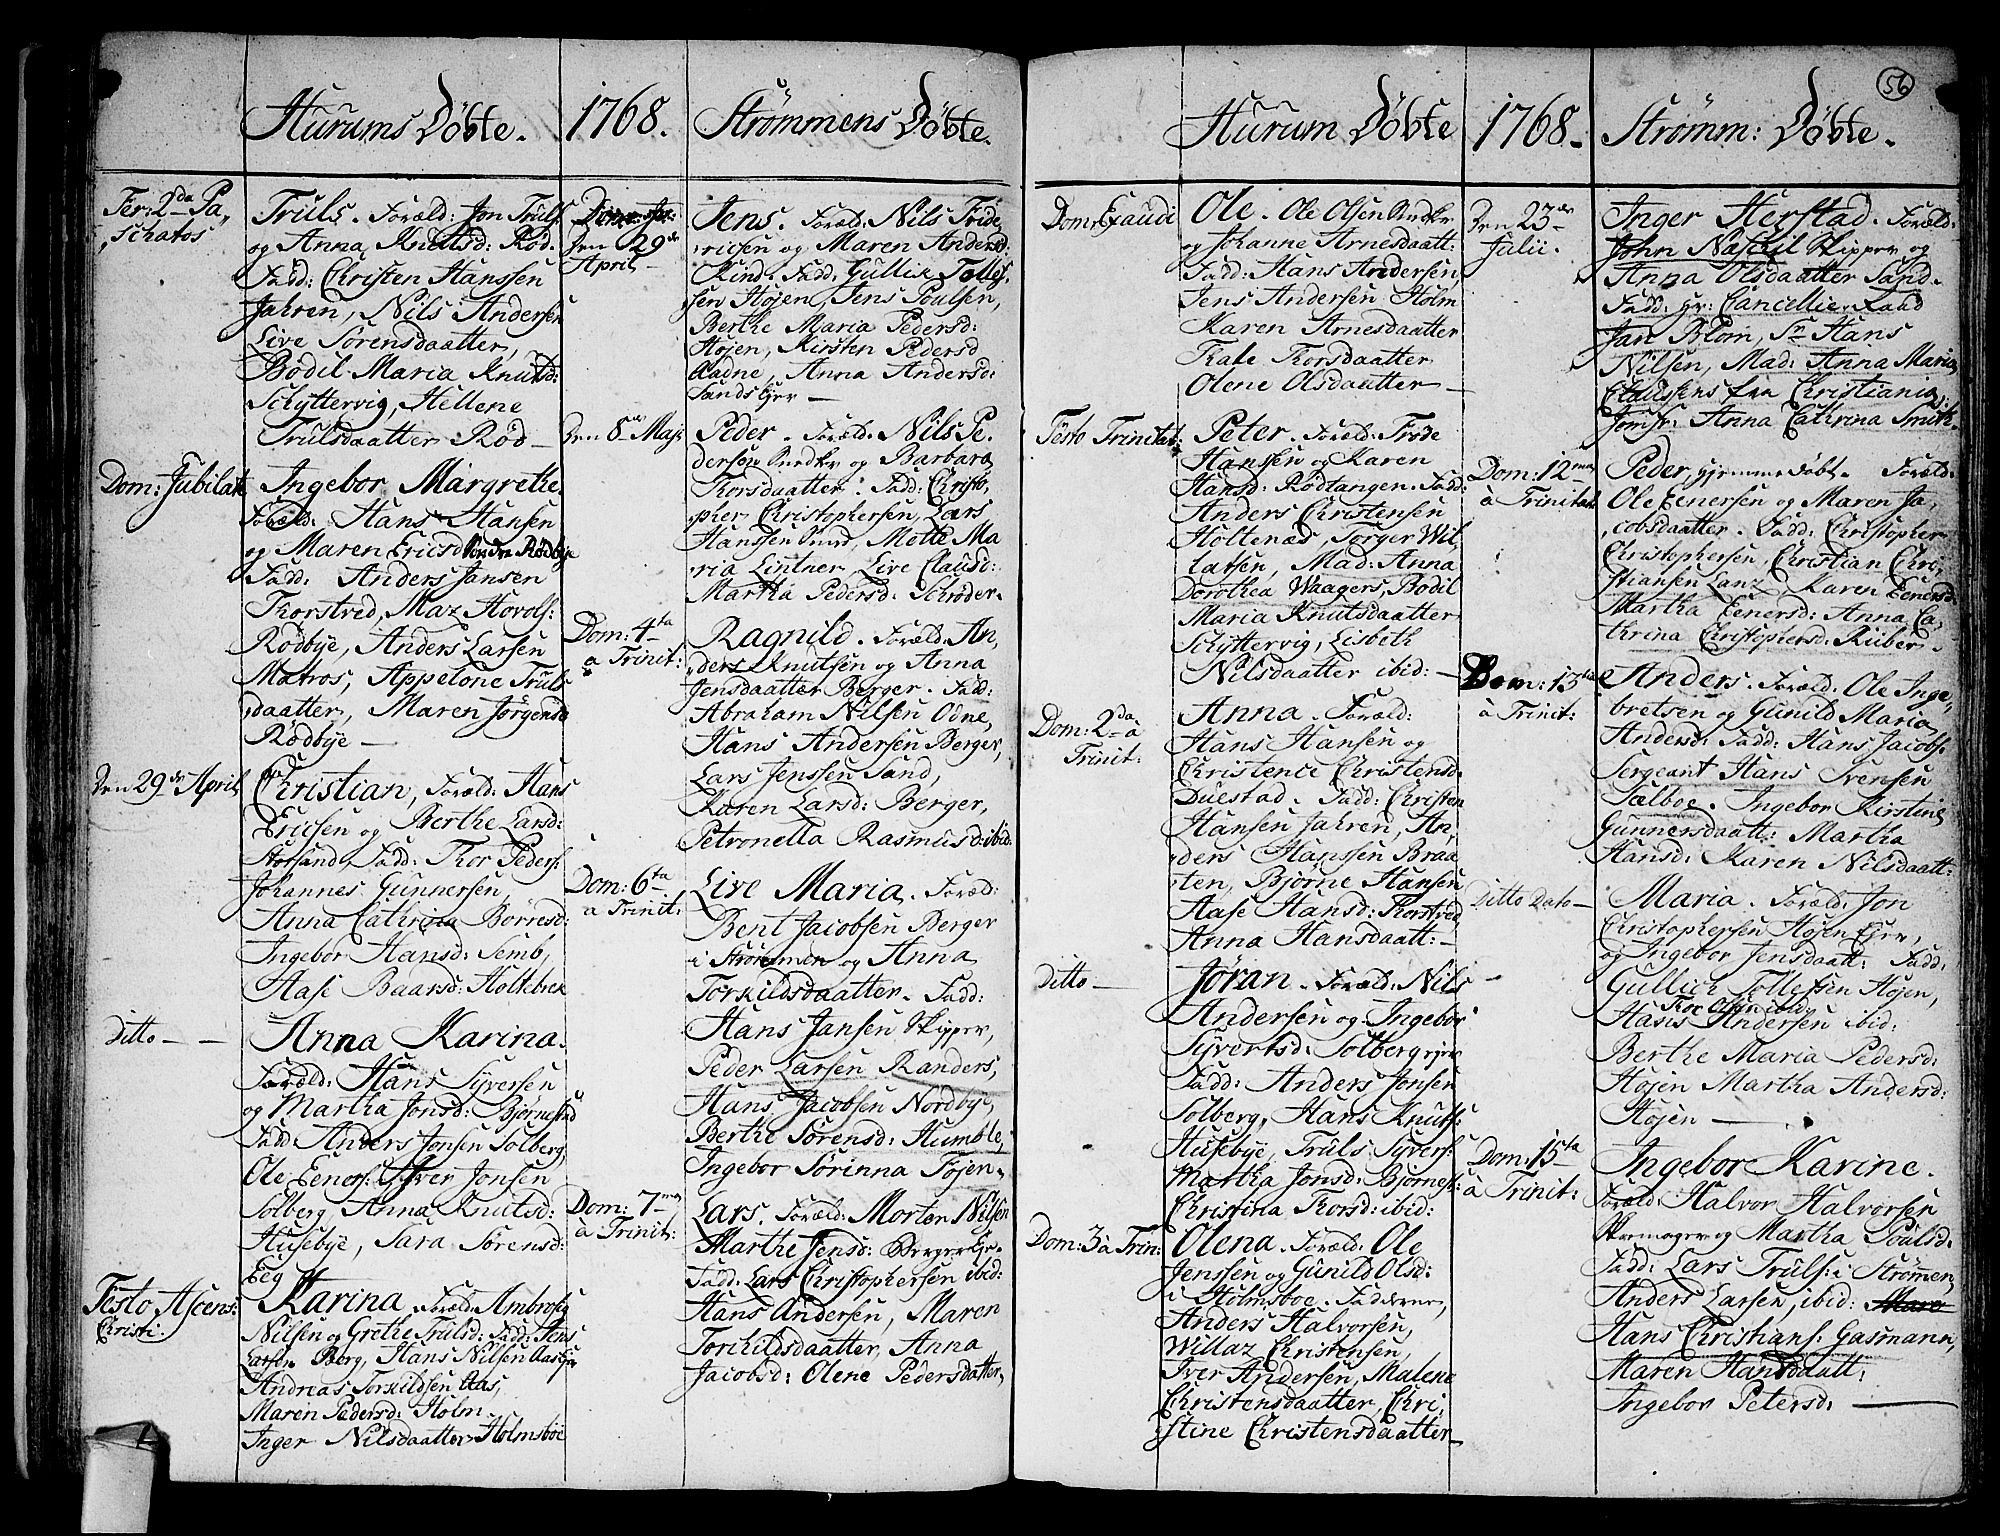 Hurums Döbte.
Fer: 2da Pa,
schatos
Truls. Foræld: Jon Truls
og Anna Knutsd: Röd
Fadd: Christen Hanssen
Jahren, Nils Andersen
Live Sörensdaatter,
Bodil Maria Knutsd:
Schÿttervig, Hellene
Trulsdaatter Röd —
Dom: Jubilate
Ingebor Margrethe.
Foræld: Hans Hansen
og Maren Ericsd: Søndre Rödbÿe
Fadd: Anders Jansen
Thorstred, Maz Hovols:
Rödbÿe, Anders Larsen
Matros, Appelone Truls
daatter, Maren Jörgensd
Rödbÿe —
Den 29de April
Christian, Foræld: Hans
Ericsen og Berthe Larsd:
Storsand, Fadd: Thor Peders:
Johannes Gunnersen,
Anna Cathrina Börresd:
Ingebor Hansd: Semb,
Aase Baarsd: Holtebrek
Ditto — —
Anna Karina.
Foræld: Hans Sÿversen
og Martha Jonsd: Björnestad
Fadd: Anders Jonsen Solberg,
Ole Eeners: Sÿver Jonsen
Solberg, Anna Knutsd:
Husebÿe, Sara Sörensd:
Eeg
Festo Ascens:
Christi.
Karina. Foræld: Ambrosius
Nilsen og Grethe Trulsd: Fadd: Jens
Larsen Berg, Hans Nilsen Aas
Andreas Torkildsen Aas,
Maren Pedersd: Holm
Inger Nilsdaatter Holmsboe
1768. Strömmens Döbte.
Den 29de
April
Jens. Foræld: Nils Fride,
ricsen og Maren Andersd
Kind. Fadd: Gullik Tolles,
sen Höjen, Jens Poulsen,
Berthe Maria Pedersd:
Höjen, Kirsten Pedersd
Aadne, Anna Andersd:
Sands Ejer —
Den 8de Maj
Peder. Foræld: Nils Pe,
dersen og Barbara
Thorsdaatter. Fadd: Christo,
pher Christophersen, Lars
Hanssen, Mette Ma
ria Lintner Live Clausd:
Martha Pedersd: Schröder.
Dom: 4ta
a Trinit:
Ragnild. Foræld: An,
ders Knutsen og Anna
Jensdaatter Berger. Fadd:
Abraham Nilsen Odne,
Hans Andersen Berger,
Lars Jenssen Sand,
Karen Larsd: Berger,
Petronella Rasmusd: ibid:
Dom: 6ta
a Trinit:
Live Maria. Foræld:
Bent Jacobsen Berger
i Strömmen og Anna
Torkildsdaatter. Fadd:
Hans Jansen Skipper,
Peder Larsen Randers,
Hans Jacobsen Nordbÿe,
Berthe Sörensd: Humble,
Ingebor Sörinna Töjen.
Dom: 7ma
à Trinit:
Lars. Foræld: Morten Nilsen
Marthe Jensd: Berger Eje.
Fadd: Lars Christophersen ibid:
Hans Andersen, Maren
Torchildsdaatter, Anna
Jacobsd: Olene Pedersdatter,
56
Hurum Döbte
Dom: Exaudi
Ole. Ole Olsen
og Johanne Arnesdaatt:
Fadd: Hans Andersen,
Jens Andersen Holm
Karen Arnesdaatter
Kale Thorsdaatter
Olene Olsdaatter —
Festo Trinitat:
Peter. Foræld: Frode
Hanssen og Karen
Hansd: Rödtangen. Fadd:
Anders Christensen
Holtenæs, Torger Wil,
latsen, Mad: Anna
Dorothea Waagers, Bodil
Maria Knutsdaatter
Schÿttervig, Lisbeth
Nilsdaatter ibid: —
Dom: 2da à
Trinit:
Anna. Foræld:
Hans Hansen og
Christence Christensd.
Duestad. Fadd: Christen
Hansen Jahren, An,
ders Hanssen Braa
ten, Björne Hansen
Aase Hansd: Thorstred,
Anna Hansdaatt: —
Ditto —
Jöran. Foræld: Nils
Andersen og Ingebor
Sÿvertsd: Solberg ejer
Fadd: Anders Jonsen
Solberg, Hans Knuts:
Husebÿe, Truls Sÿvers:
Martha Jonsd: Björnest:
Christina Thorsd: ibid:
Dom: 3 à Trin:
Olena. Foræld: Ole
Jenssen og Gunild Olsd:
i Holmsboe. Fadderne,
Anders Halvorsen,
Willaz Christensen,
Iver Andersen, Malene
Christensdaatter, Chri,
stine Christensdaatter —
1768. Strömm: Döbte.
Den 23de
Julii.
Inger Herstad. Foræld:
John Naschil Skipper og
Anna Olsdaatter Sand.
Fadd: Hr: Cancellie Raad
Jan Blom, Sr Hans
Nilsen, Mad: Anna Maria
Claussens fra Christiania,
Jomfr: Anna Cathrina Smith.
Dom: 12ma
à Trinitat:
Peder, hjemme Döbt. Foræld:
Ole Eenersen og Maren Ja,
cobsdaatter. Fadd: Christopher
Christophersen, Christian Chri,
stiansen Lanz, Karen Eenersd.
Martha Eenersd: Anna Ca,
thrina Christophersd: Kuber.
Dom: 13tia
à Trinit:
Anders. Foræld. Ole Inge,
bretsen og Gunild Maria
Andersd: Fadd: Hans Jacobs:
Sergeant Hans Svensen
Sælboe. Ingebor Kirstine
Gunnersdaatt: Martha
Hansd: Karen Nilsdaatt:
Ditto Dato —
Maria. Foræld: Jon
Christophersen Höjen Ejer,
og Ingebor Jensdaatt: Fadd:
Gullich Tollefsen Höjen,
Thor Olsen ibid:
Hasis Andersen ibid:
Berthe Maria Pedersd:
Höjen Martha Andersd:
Höjen —
Dom: 15ta
à Trinit:
Ingebor Karine.
Foræld: Halvor Halvorsen
Skomager og Martha Poulsd:
Fadd: Lars Truls: i Strömen,
Anders Larsen, ibid: Mare
Hans Christians: Gasmann,
Maren Hansdaatt:
Ingebor Petersd: —